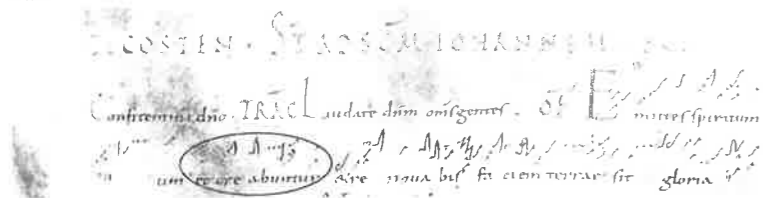 COSTEN · STADSCM IOHANNEM
Confitemini dño · TRAC Laudate dñm om̅s gentes · Emittes spiritum
um et cre abuntur &re noua bis fa ciem terrae sit gloria